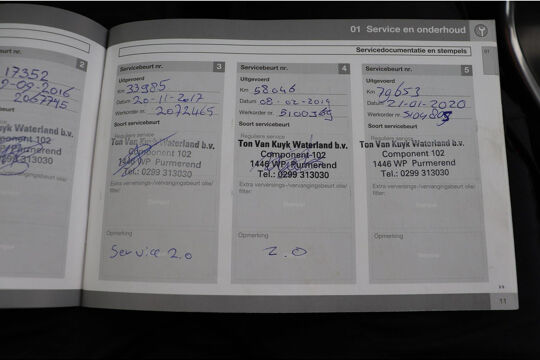 01 Service en onderhoud
Servicedocumentatie en stempels
01
2
17352
9-09-2016
2067745
Servicebeurt nr. 3
Uitgevoerd
Km 33985
Datum 20-11-2017
Werkorder nr. 2072465
Soort servicebeurt
Reguliere service
Ton Van Kuyk Waterland b.v.
Component 102
1446 WP Purmerend
Tel.: 0299 313030
Extra verversings-/vervangingsbeurt olie/
filter:
Opmerking
Service 2.0
Servicebeurt nr. 4
Uitgevoerd
Km 58046
Datum 08-02-2019
Werkorder nr.
Soort servicebeurt
Reguliere service
Ton Van Kuyk Waterland b.v.
Component 102
1446 WP Purmerend
Tel.: 0299 313030
Extra verversings-/vervangingsbeurt olie/
filter:
Opmerking
2.0
Servicebeurt nr. 5
Uitgevoerd
Km 79653
Datum 21-01-2020
Werkorder nr.
Soort servicebeurt
Reguliere service
Ton Van Kuyk Waterland b.v.
Component 102
1446 WP Purmerend
Tel.: 0299 313030
Extra verversings-/vervangingsbeurt olie/
filter:
Opmerking
11